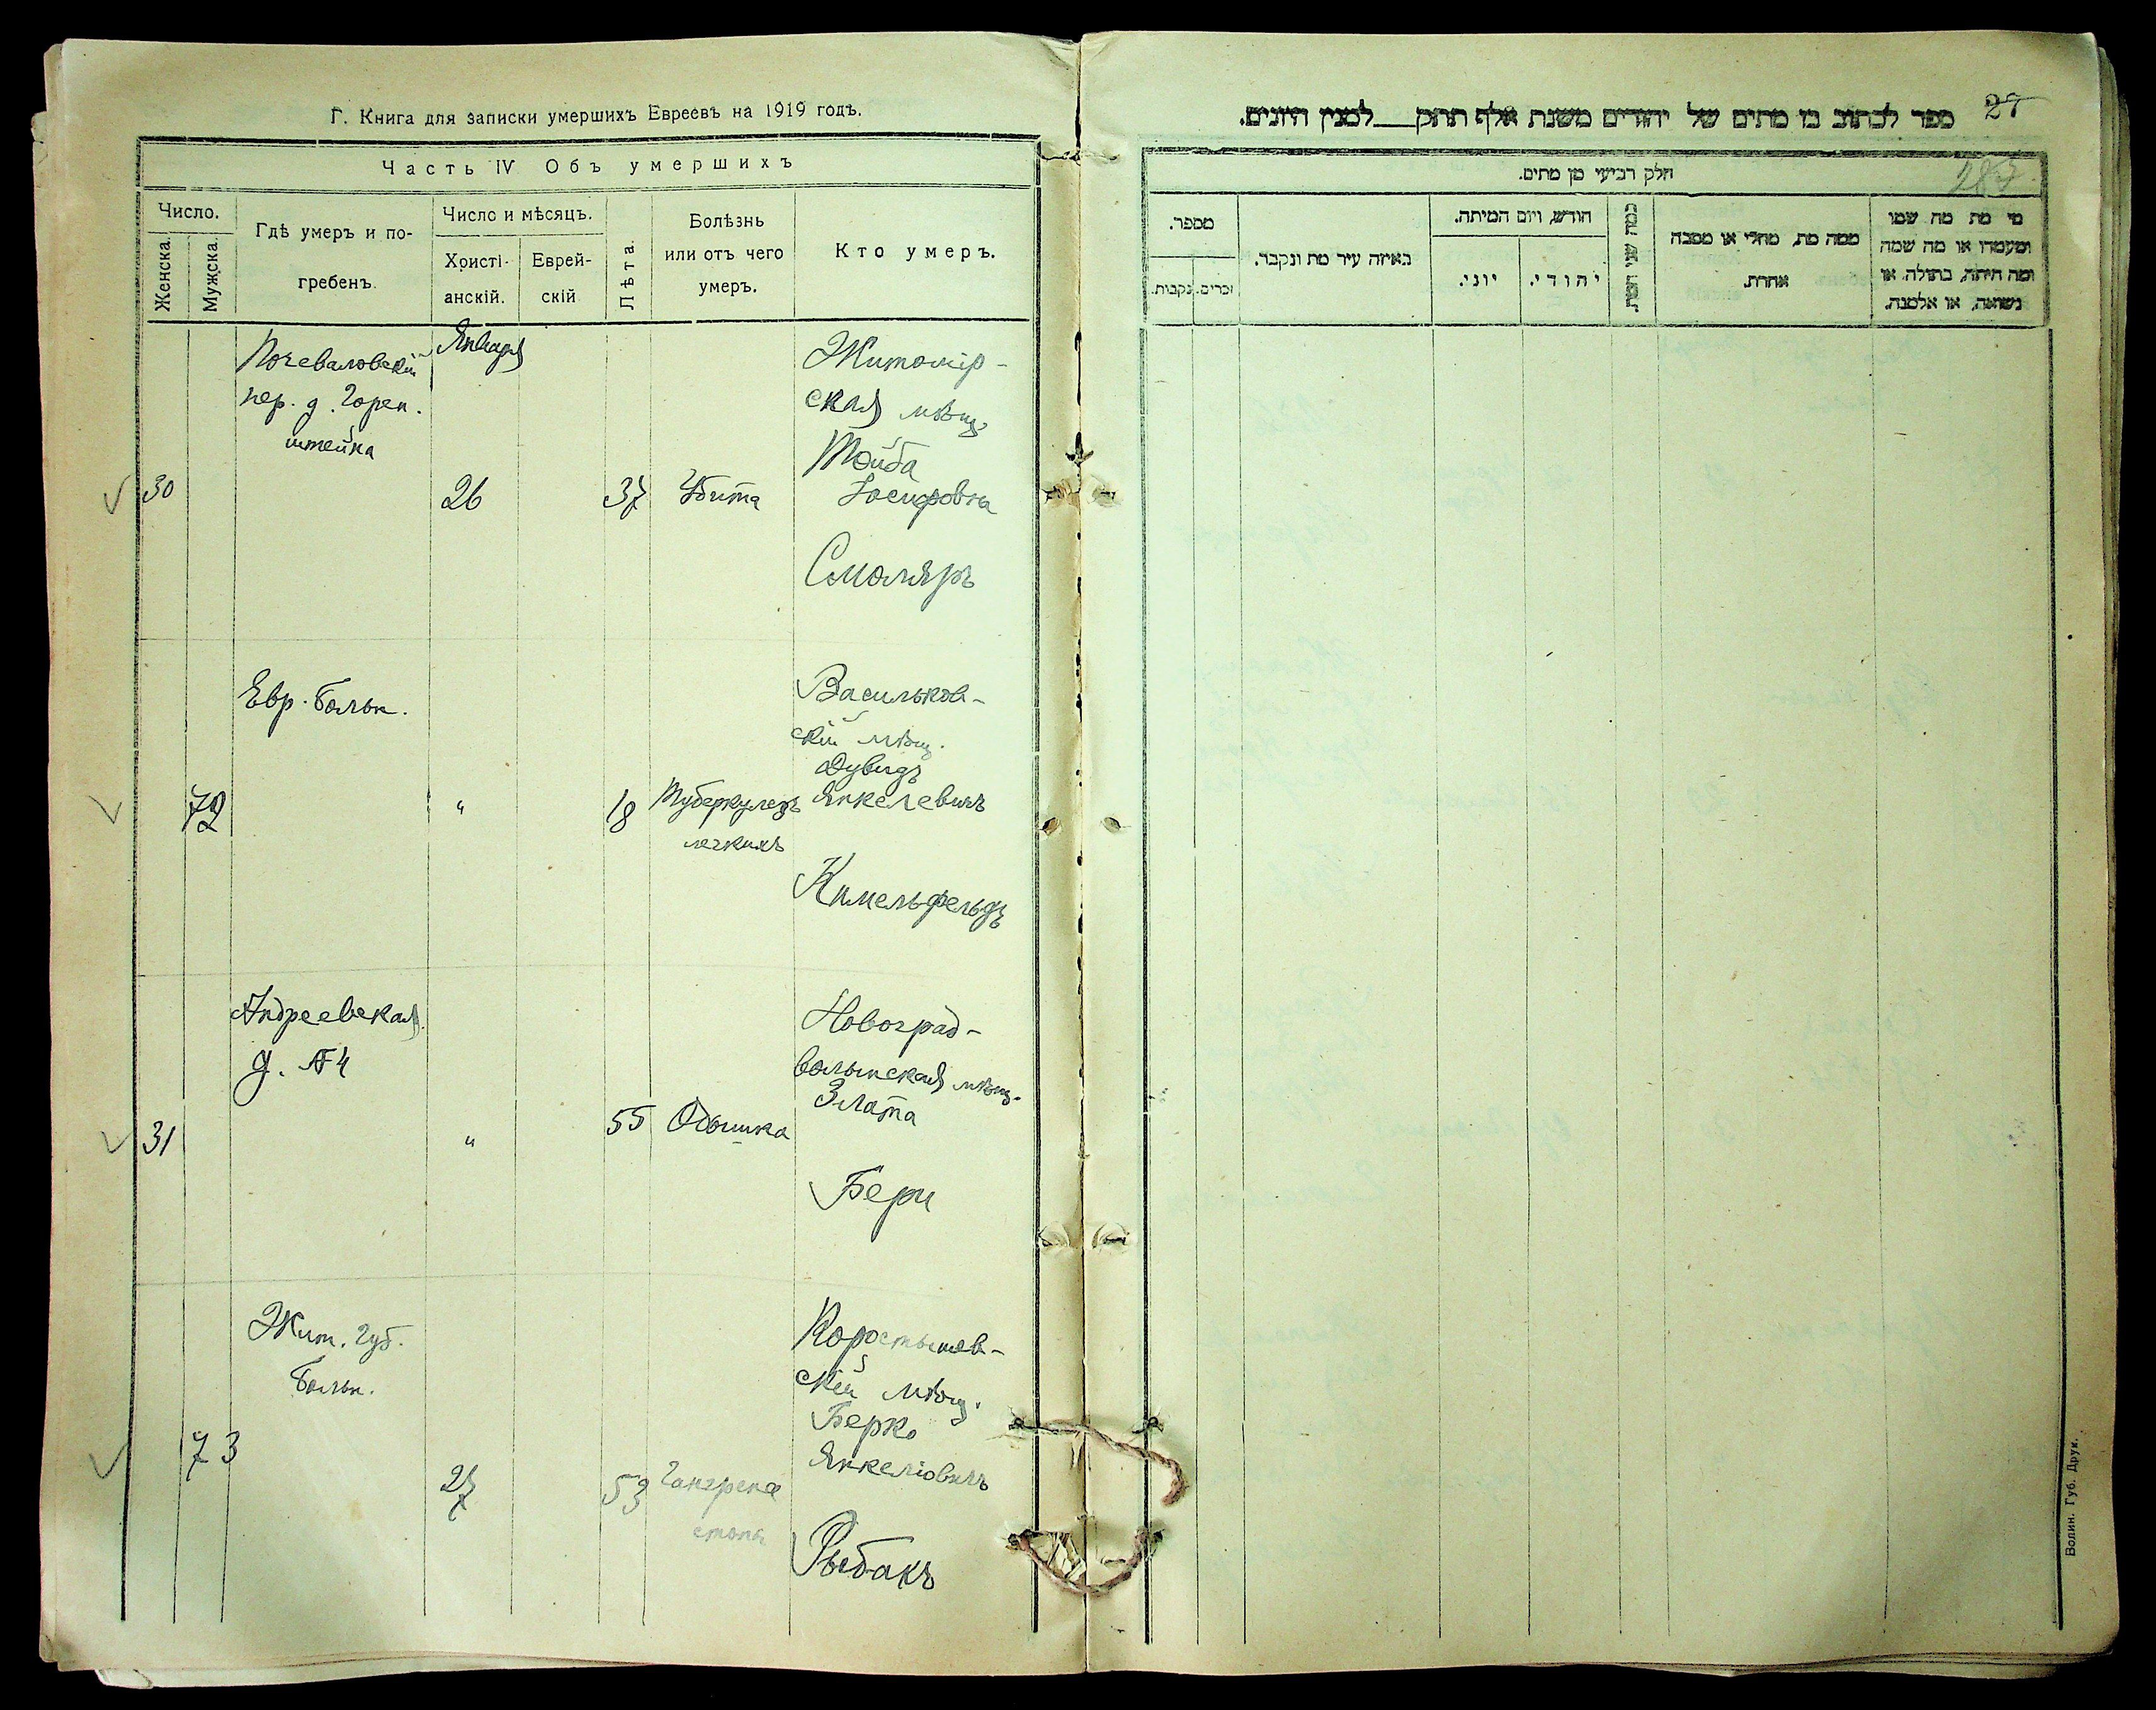 Г. Книга для записки умершихъ Евреевъ на 1919 годъ.
Часть IV Объ умершихъ
Число.
Женска.
Мужска
Гдѣ умеръ и по-
гребенъ.
Число и мѣсяцъ.
Христі-
анскій.
Еврей-
скій
Лѣта.
Болѣзнь
или отъ чего
умеръ.
Кто умеръ.
Января
пер. д. Горен.
штейна
30
26
37
Убита
Житомір-
ская мѣщ.
Тойба
Іосифовна
Смоляръ
Евр. Больн.
72
"
18
Туберкулезъ
легкихъ
Васильков-
скій мѣщ.
Дувидъ
Янкелевичъ
Кимельфельдъ
Андреевская
д. №4
31
"
55
Одышка
Новоград-
волынская мѣщ.
Злата
Бери
Жит. Губ.
Больн.
73
27
53
Гангрена
стопы
Коростышев-
скій мѣщ.
Берко
Янкеліовичъ
Рыбакъ
27
ספר לכתוב בו מתים של יהודים משנת אלף תתק___למנין היונים.
287
חלק רביעי מן מתים.
מי מת מה שמו
ומעמדו או מה שמה
ומה היתה, בתולה, או
נשואה, או אלמנה.
ממה מת, מחלי או מסבה
אחרת.
כמה שני המת.
חודש, ויום המיתה.
יהודי.
יוני.
באיזה עיר מת ונקבר.
מספר.
זכרים.
נקבות.
Волин. Губ. Друк.